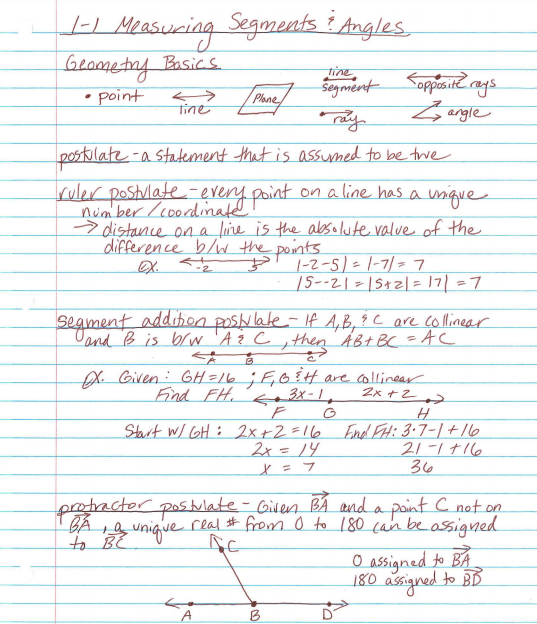 1-1 Measuring Segments & Angles
Geometry Basics
• point
line
Plane
line
segment
ray
opposite rays
angle
postulate - a statement that is assumed to be true
ruler postulate - every point on a line has a unique
number / coordinate
→ distance on a line is the absolute value of the
difference b/w the points
ex. -2 5 |-2-5| = |-7| = 7
|5--2| = |5+2| = |7| = 7
segment addition postulate - If A, B, & C are collinear
and B is b/w A & C, then AB + BC = AC
A B C
ex. Given: GH = 16 ; F, G & H are collinear
Find FH. 3x-1 2x+2
F G H
Start w/ GH: 2x+2 = 16 Find FH: 3·7-1+16
2x = 14 21-1+16
x = 7 36
protractor postulate - Given BA and a point C not on
BA, a unique real # from 0 to 180 can be assigned
to BC.
C
0 assigned to BA
180 assigned to BD
A B D